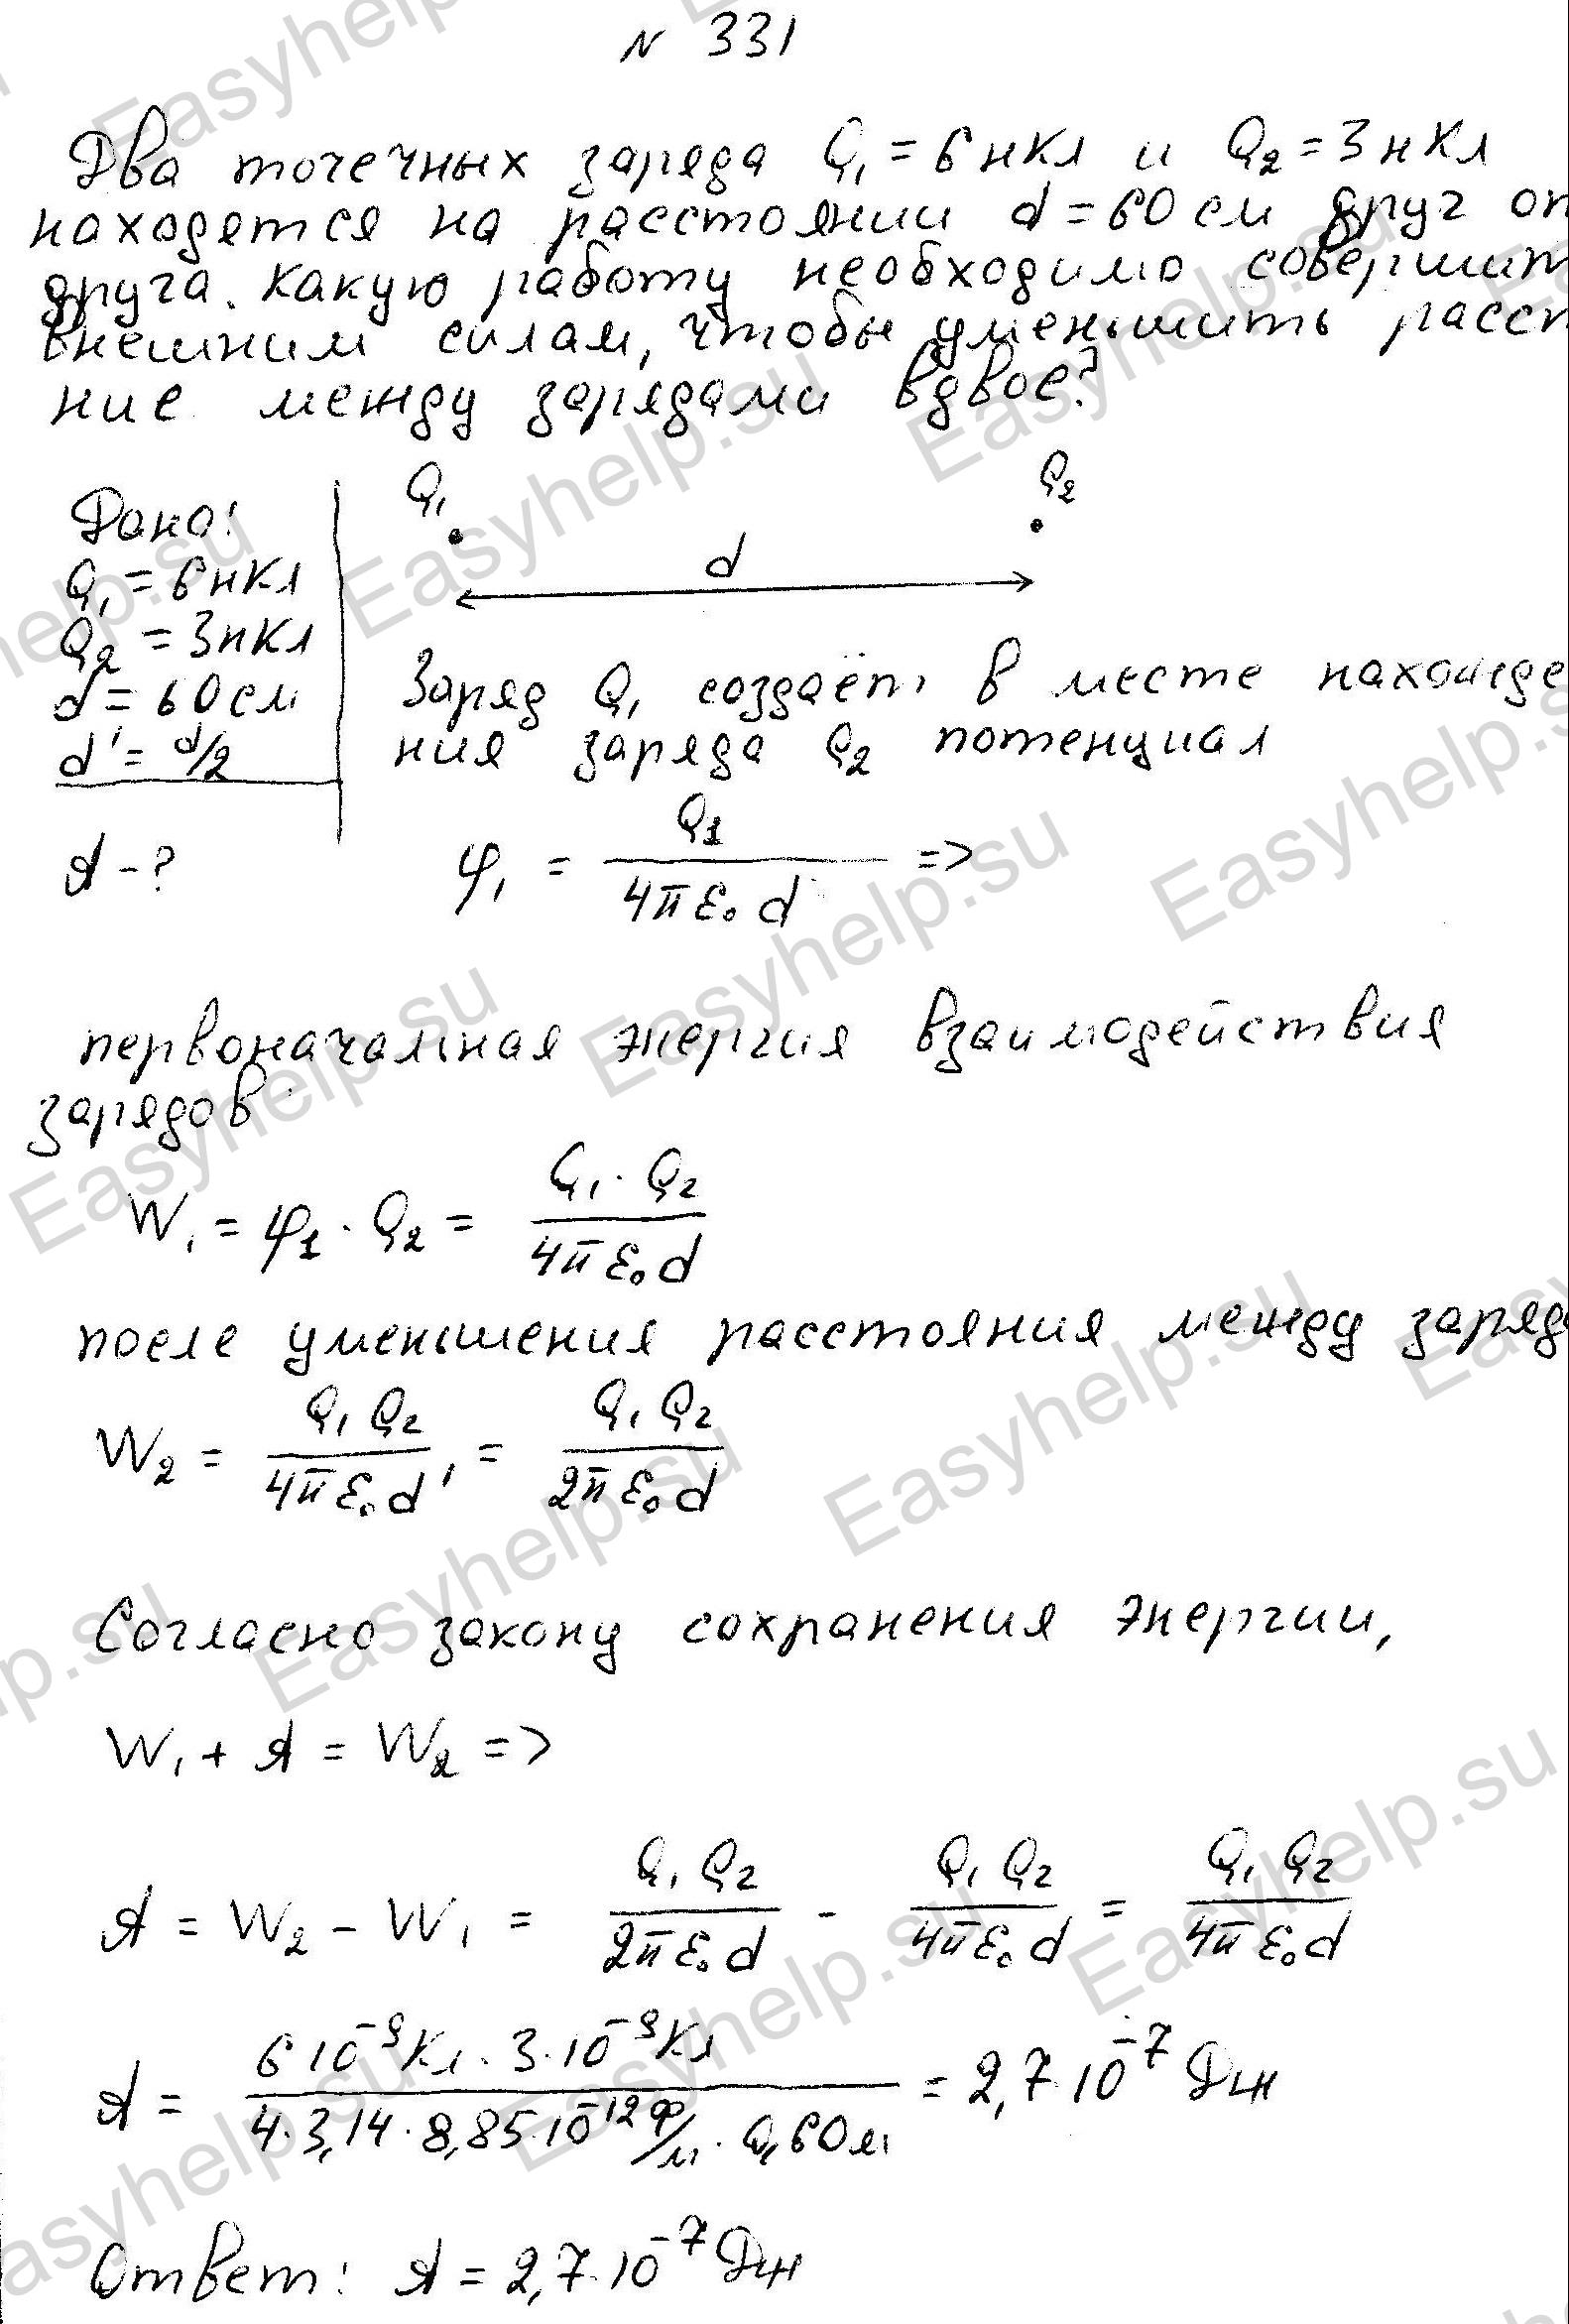 N 331
Два точечных заряда Q₁ = 6 нКл и Q₂ = 3 нКл
находятся на расстоянии d = 60 см друг от
друга. Какую работу необходимо совершит
внешним силам, чтобы уменьшить расст
ние между зарядами вдвое?
Дано:
Q₁ = 6 нКл
Q₂ = 3 нКл
d = 60 см
d' = d/2
A - ?
Q₁ Q₂
d
Заряд Q₁ создаёт в месте нахожде
ния заряда Q₂ потенциал
φ₁ = Q₁ / (4πε₀d) =>
первоначальная энергия взаимодействия
зарядов
W₁ = φ₁ · Q₂ = Q₁ · Q₂ / (4πε₀d)
после уменьшения расстояния между заряд
W₂ = Q₁Q₂ / (4πε₀d') = Q₁Q₂ / (2πε₀d)
Согласно закону сохранения энергии,
W₁ + A = W₂ =>
A = W₂ - W₁ = Q₁Q₂ / (2πε₀d) - Q₁Q₂ / (4πε₀d) = Q₁Q₂ / (4πε₀d)
A = 6·10⁻⁹Кл · 3·10⁻⁹Кл / (4·3,14·8,85·10⁻¹² Ф/м · 0,60м) = 2,7·10⁻⁷ Дж
Ответ: A = 2,7·10⁻⁷ Дж
Easyhelp.su